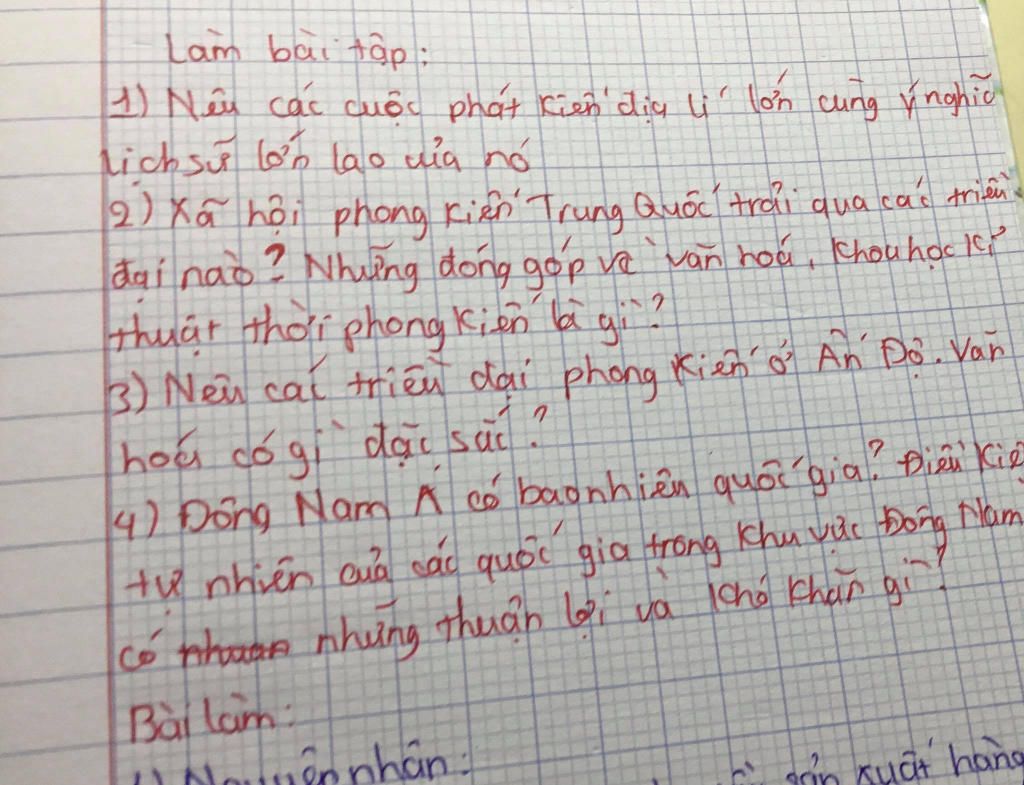 Làm bài tập:
1) Nêu các cuộc phát kiến địa lí lớn cùng ý nghĩa
lịch sử lớn lao của nó
2) Xã hội phong kiến Trung Quốc trải qua các triều
đại nào? Những đóng góp về văn hoá, khoa học kĩ
thuật thời phong kiến là gì?
3) Nêu các triều đại phong kiến ở Ấn Độ. Văn
hoá có gì đặc sắc?
4) Đông Nam Á có bao nhiên quốc gia? Điều kiệ
tự nhiên của các quốc gia trong khu vực Đông Nam
có những thuận lợi và khó khăn gì?
Bài làm:
1) Nguyên nhân: sản xuất hàng